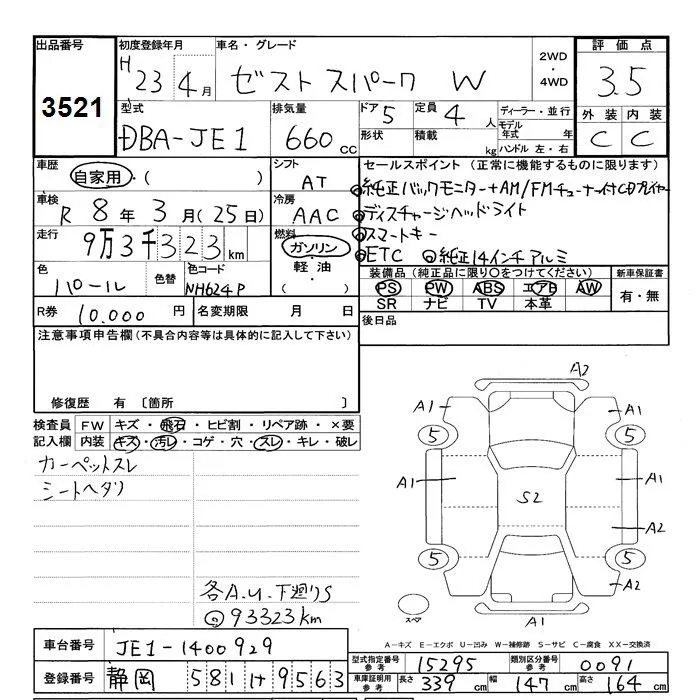 出品番号 初度登録年月 車名・グレード 2WD・4WD 評価点
3521 H23 4月 ゼストスパーク W 3.5
型式 排気量 ドア 5 定員 4人 ディーラー・並行 外装 内装
DBA-JE1 660cc 形状 積載 kg モデル年式 年 ハンドル 左・右 C C
車歴 自家用・( ) シフト AT セールスポイント(正常に機能するものに限ります)
◎純正バックモニター+AM/FMチューナー付CDプレイヤー
車検 R 8年 3月(25日) 冷房 AAC ◎ディスチャージヘッドライト
走行 9万3千323km 燃料 ガソリン・軽油・( ) ◎スマートキー
◎ETC ◎純正14インチアルミ
色 パール 色替 色コード NH624P 装備品(純正品に限り○をつけてください) 新車保証書
PS PW ABS エアB AW 有・無
SR ナビ TV 本革
R券 10,000円 名変期限 月 日 後日品
注意事項申告欄(不具合内容等は具体的に記入して下さい)
修復歴 有 〔箇所 〕
検査員記入欄 FW キズ・飛石・ヒビ割・リペア跡・×要
内装 キズ・汚レ・コゲ・穴・スレ・キレ・破レ
カーペットスレ
シートヘタリ
各A.U.下廻りS
◎93323km
A2
A1 A1
5 5
A1 A1
S2
A2
5 5
A2
スペア A1
A-キズ E-エクボ U-凹み W-補修跡 S-サビ C-腐食 XX-交換済
車台番号 JE1-1400929
型式指定番号参考 15295 類別区分番号参考 0091
登録番号 静岡 581 け 9563
車庫証明用参考 長さ 339cm 幅 147cm 高さ 164cm